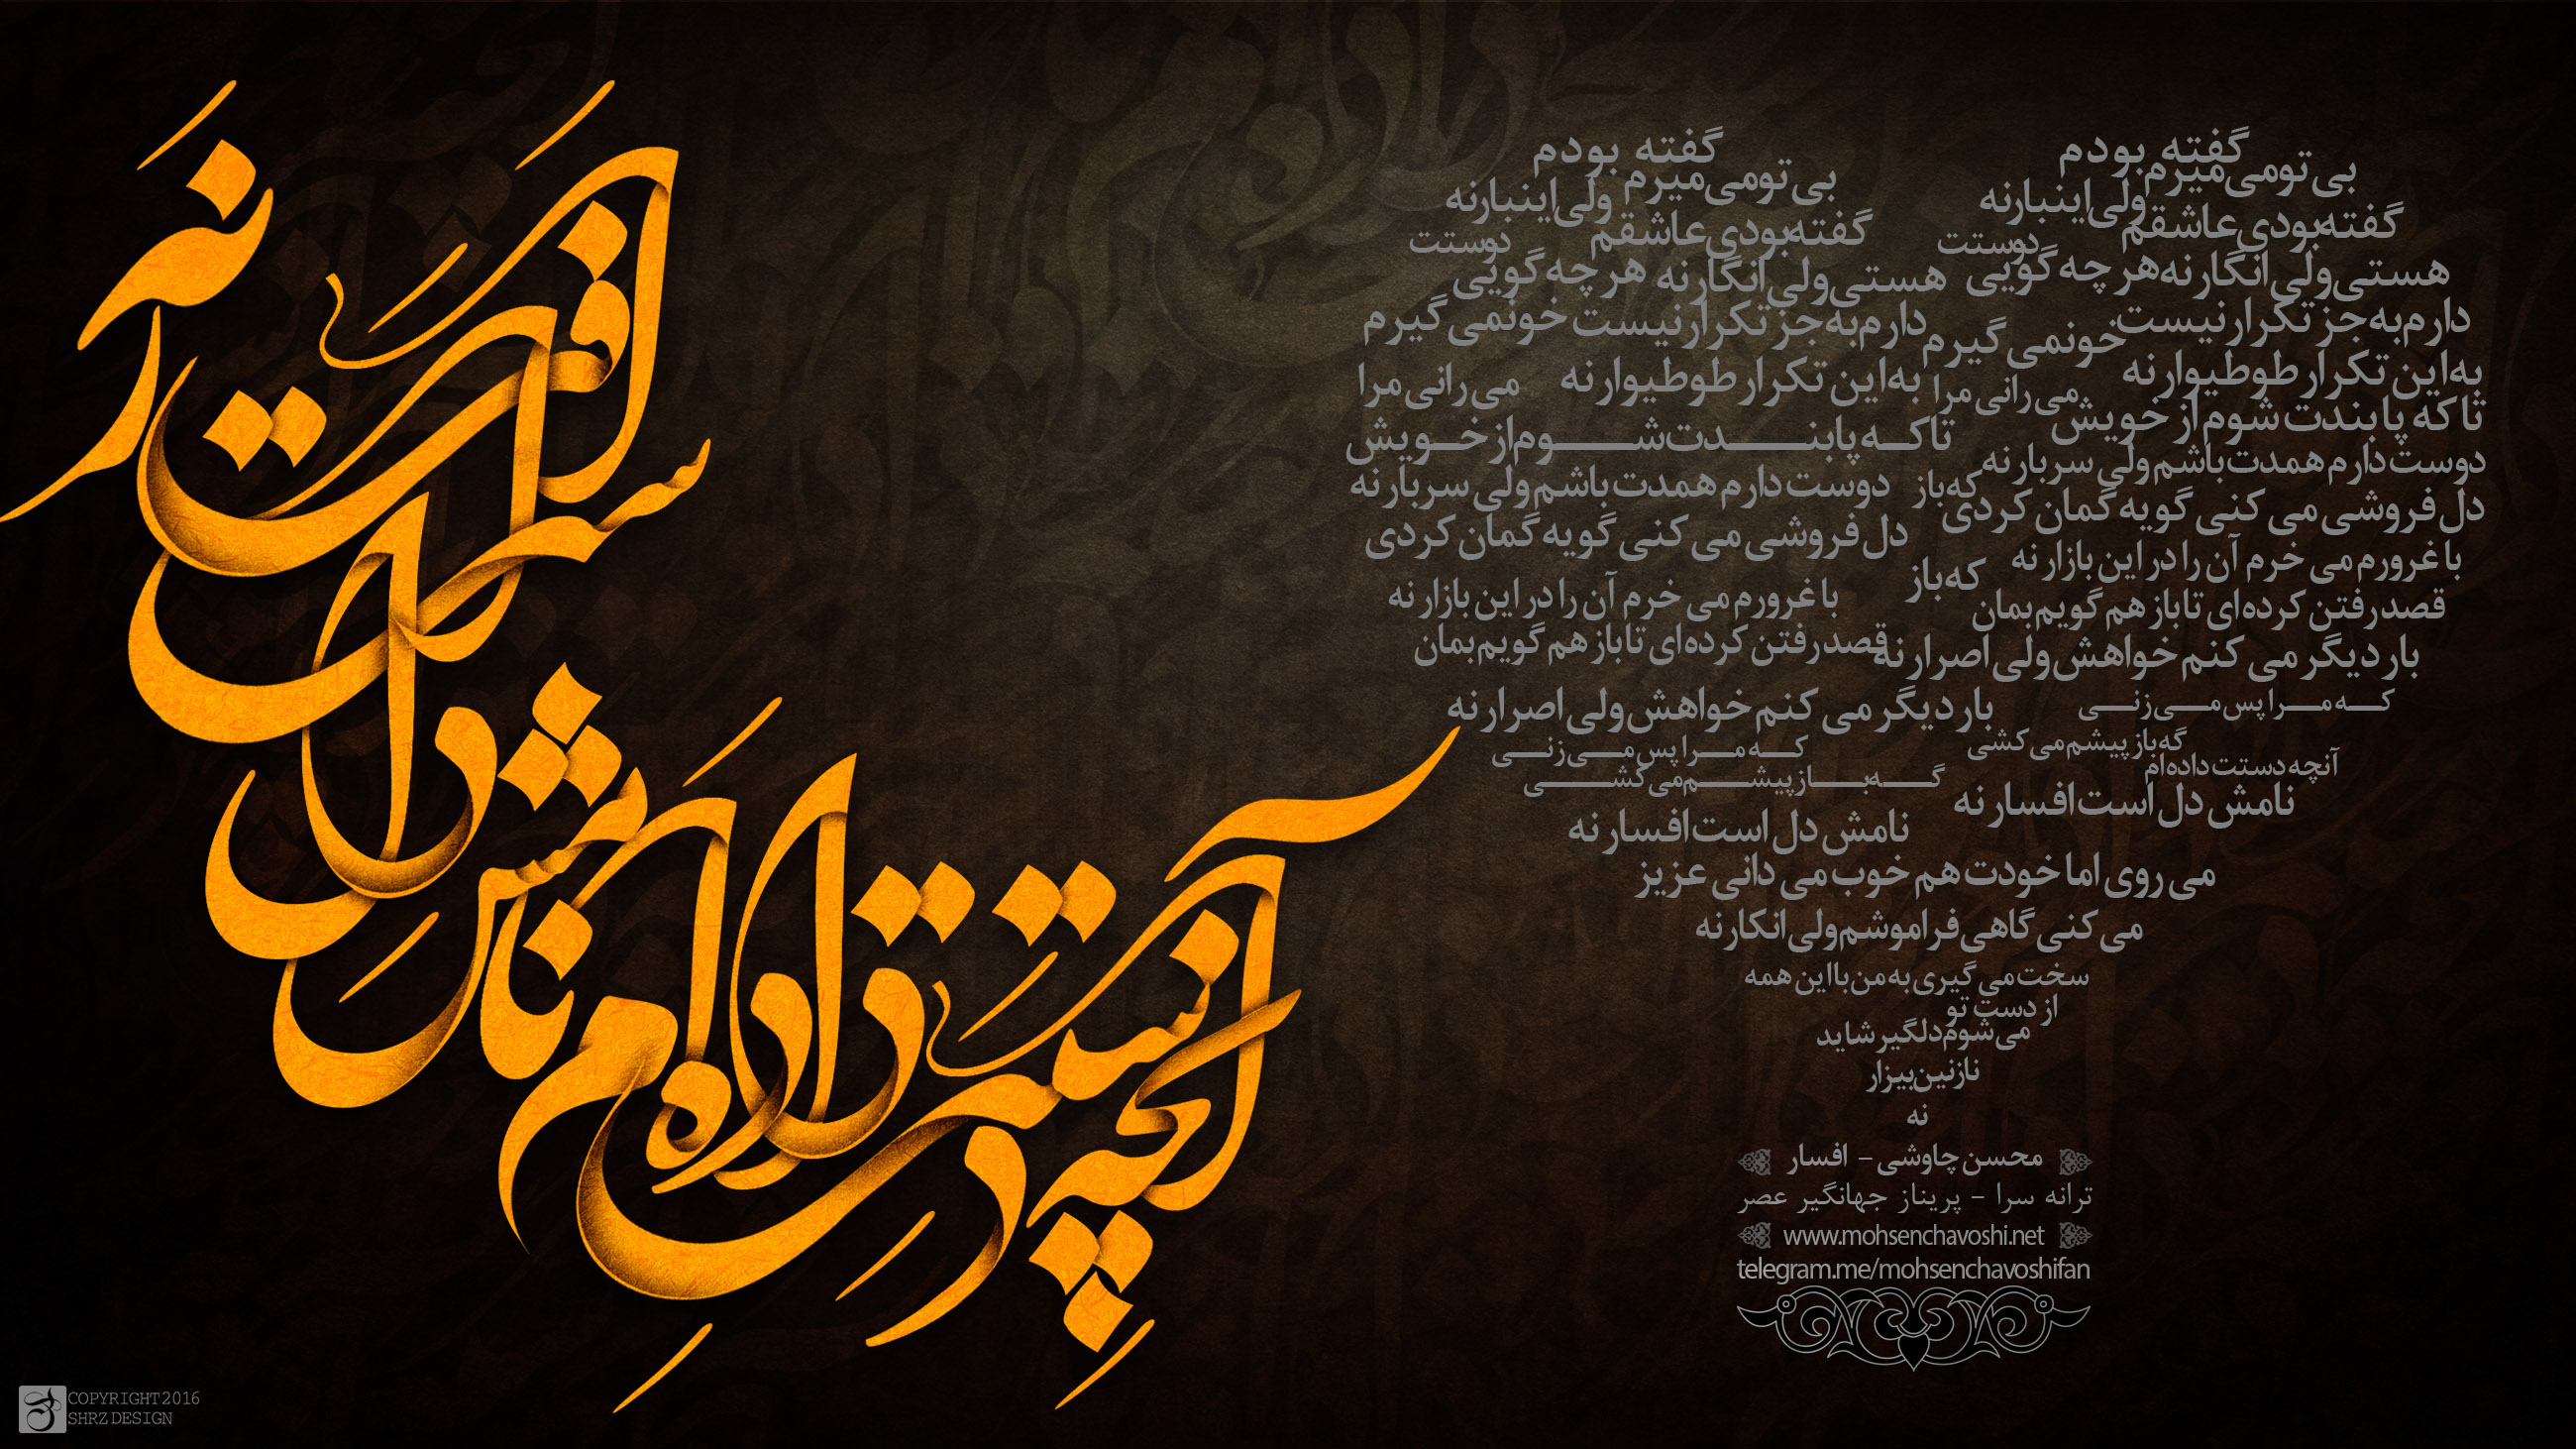 آنچه دستت داده‌ام نامش دل است افسار نه
گفته بودم
بی تو می میرم ولی اینبار نه
گفته بودی عاشقم دوستت
هستی ولی انگار نه هر چه گویی
دارم به جز تکرار نیست خو نمی گیرم
به این تکرار طوطیوار نه می رانی مرا
تا که پابندت شوم از خویش
دوست دارم همدمت باشم ولی سربار نه
دل فروشی می کنی گویه گمان کردی که باز
با غرورم می خرم آن را در این بازار نه
قصد رفتن کرده ای تا باز هم گویم بمان که باز
بار دیگر می کنم خواهش ولی اصرار نه
کـــه مـــرا پس مـــی زنـــی
گه باز پیشم می کشی
آنچه دستت داده ام
نامش دل است افسار نه
گفته بودم
بی تو می میرم ولی اینبار نه
گفته بودی عاشقم دوستت
هستی ولی انگار نه هر چه گویی
دارم به جز تکرار نیست خو نمی گیرم
به این تکرار طوطیوار نه می رانی مرا
تا کــه پابنـــدت شـــوم از خــویش
دوست دارم همدمت باشم ولی سربار نه
دل فروشی می کنی گویه گمان کردی
با غرورم می خرم آن را در این بازار نه
قصد رفتن کرده ای تا باز هم گویم بمان
بار دیگر می کنم خواهش ولی اصرار نه
کـــه مـــرا پس مـــی زنـــی
گـــه بـــاز پیشـــم می کشـــی
نامش دل است افسار نه
می روی اما خودت هم خوب می دانی عزیز
می کنی گاهی فراموشم ولی انکار نه
سخت می گیری به من با این همه
از دست تو
می شوم دلگیر شاید
نازنین بیزار
نه
محسن چاوشی - افسار
ترانه سرا - پریناز جهانگیر عصر
www.mohsenchavoshi.net
telegram.me/mohsenchavoshifan
COPYRIGHT 2016
SHRZ DESIGN